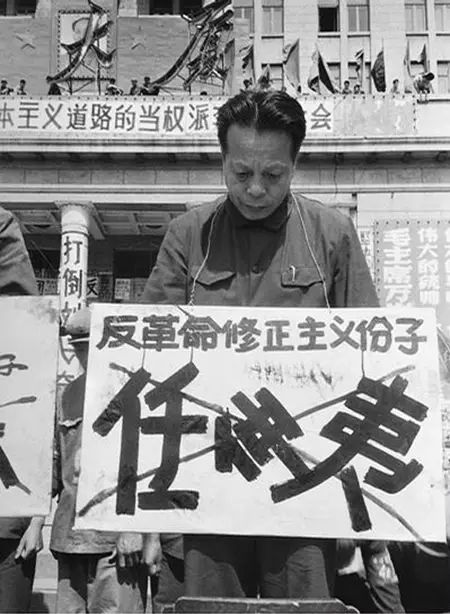 本主义道路的当权派 会
打倒
伟大的统帅
毛主席万
反革命修正主义份子
任仲夷